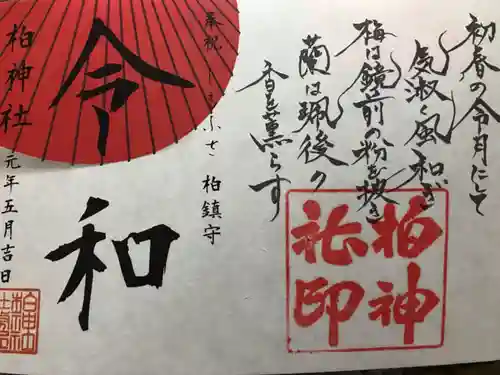 初春の令月にして
気淑く風和ぎ
梅は鏡前の粉を披き
蘭は珮後の
香を薫らす
柏神
社印
奉祝 しもふさ 柏鎮守
令和
柏神社
元年五月吉日